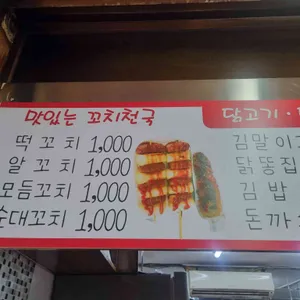 맛있는 꼬치천국
떡 꼬 치 1,000
알 꼬 치 1,000
모듬꼬치 1,000
순대꼬치 1,000
닭고기 ·
김말이
닭똥집
김 밥
돈까